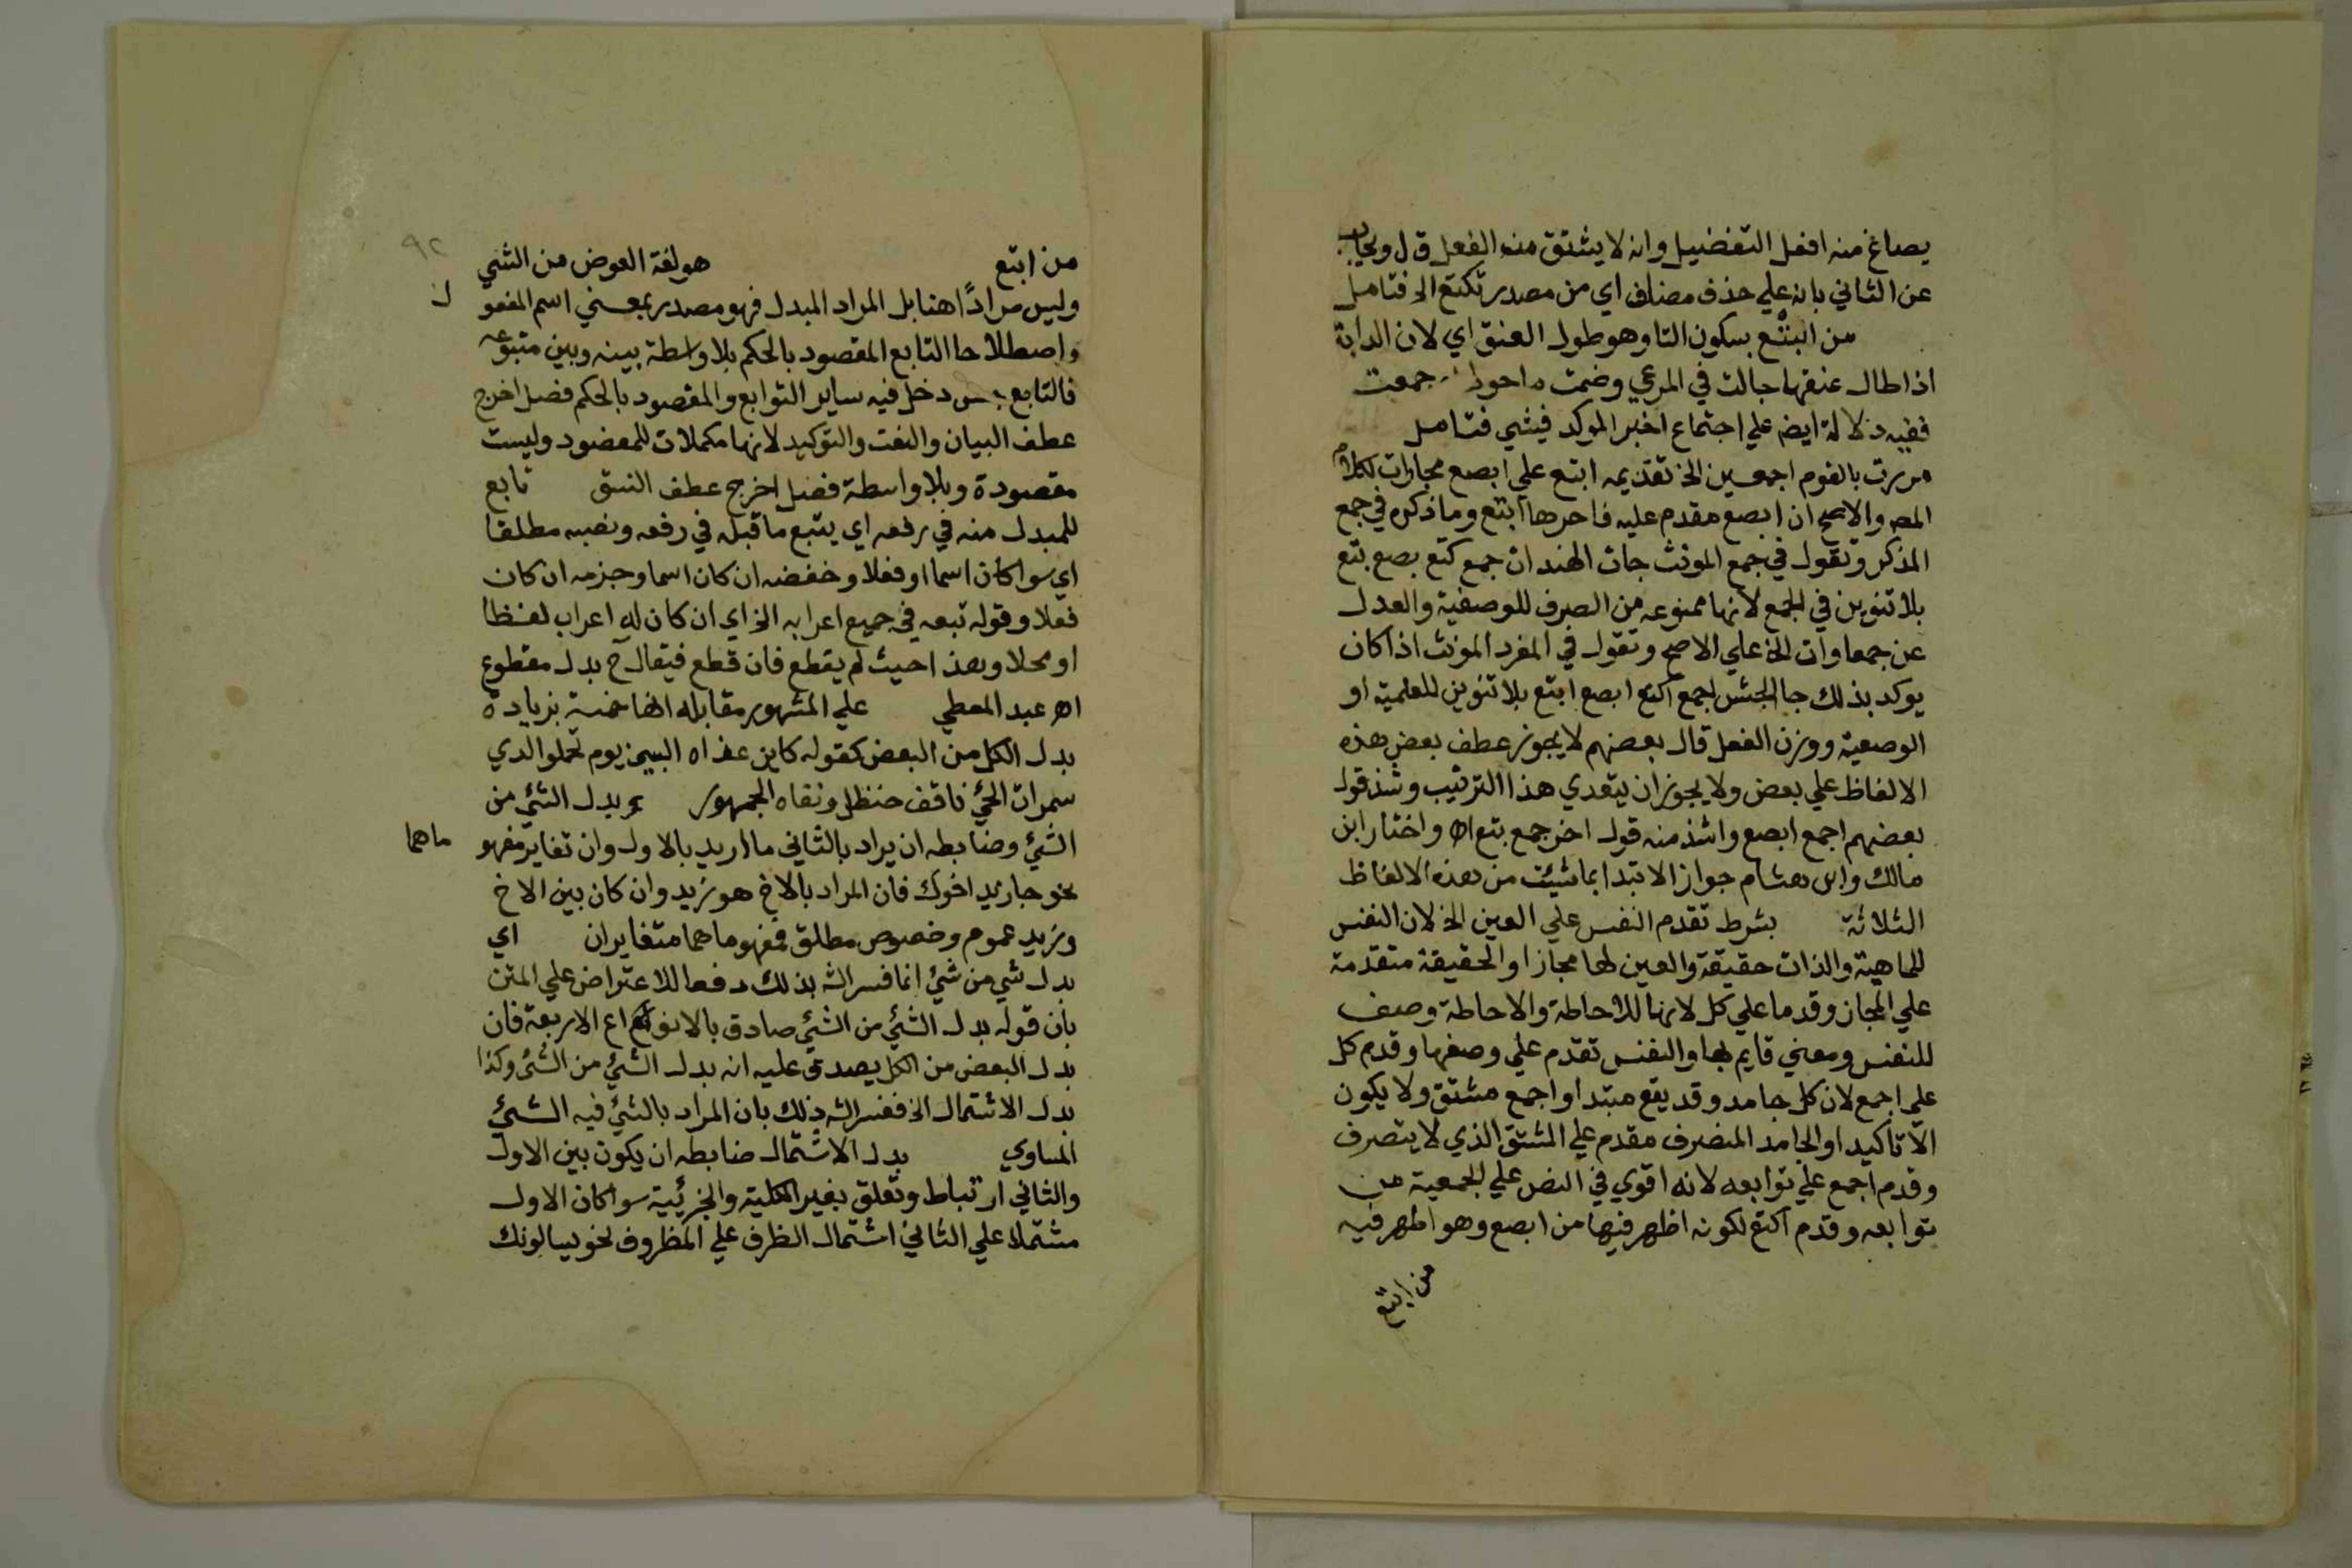 يصاغ منه افعل التفضيل وانه لا يشتق منه الفعل ق ل ويجاب
عن الثاني بانه علي حذف مضاف اي من مصدر تكتع الخ فتامل
من البتع بسكون التا وهو طول العنق اي لان الدابة
اذا طال عنقها جالت في المرعي وضمت ما حولها جمعت
ففيه دلالة ايضم علي اجتماع اخبر الموكد فيشي فتامل
مررت بالقوم اجمعين الخ تقديمه ابتع علي ابصع مجاراة لكلام
المصه والاصح ان ابصع مقدم عليه فاحرها ابتع وما ذكره في جمع
المذكر وتقول في جمع المونث جات الهندات جمع كتع بصع بتع
بلا تنوين في الجمع لانها ممنوعه من الصرف للوصفية والعدل
عن جمعاوات الخ علي الاصح وتقول في المفرد المونث اذا كان
يوكد بذلك جا الجيش اجمع اكتع ابصع ابتع بلا تنوين للعلمية او
الوصفية ووزن الفعل قال بعضهم لا يجوز عطف بعض هذه
الالفاظ علي بعض ولا يجوز ان يتعدي هذا الترتيب وشذ قول
بعضهم اجمع ابصع واشذ منه قول اخر جمع بتع اه واختار ابن
مالك وابن هشام جواز الابتدا بما شيئت من هذه الالفاظ
الثلاثة بشرط تقدم النفس علي العين الخ لان النفس
للماهية والذات حقيقة والعين لها مجازا والحقيقة متقدمة
علي المجاز وقدما علي كل لانها للاحاطة والاحاطة وصف
للنفس ومعني قايم بها والنفس تقدم علي وصفها وقدم كل
علي اجمع لان كل جامد وقد يقع مبتدا واجمع مشتق ولا يكون
الا تاكيدا والجامد المنصرف مقدم علي المشتق الذي لا يتصرف
وقدم اجمع علي توابعه لانه اقوي في النص علي الجمعية من
توابعه وقدم اكتع لكونه اظهر فيها من ابصع وهو اظهر فيه
من ابتع
٩٢
من ابتع هو لغة العوض من الشي
وليس مرادًا هنا بل المراد المبدل فهو مصدر بمعني اسم المفعو ل
واصطلاحا التابع المقصود بالحكم بلا واسطة بينه وبين متبوعه
فالتابع جنس دخل فيه ساير التوابع والمقصود بالحكم فصل اخرج
عطف البيان والنعت والتوكيد لانها مكملات للمقصود وليست
مقصودة وبلا واسطة فصل اخرج عطف النسق تابع
للمبدل منه في رفعه اي يتبع ما قبله في رفعه ونصبه مطلقا
اي سوا كان اسما او فعلا وخفضه ان كان اسما وجزمه ان كان
فعلا وقوله تبعه في جميع اعرابه الخ اي ان كان له اعراب لفظا
او محلا وهذا حيث لم يقطع فان قطع فيقال ح بدل مقطوع
اه عبد المعطي علي المشهور مقابله انها خمسة بزيادة
بدل الكل من البعض كقوله كاين غداه البين يوم تحملوا لدي
سمرات الحي ناقف حنظل ونفاه الجمهور بدل الشئ من
الشئ وضابطه ان يراد بالثاني ما اريد بالاول وان تغاير مفهو ماهما
نحو جا زيد اخوك فان المراد بالاخ هو زيد وان كان بين الاخ
وزيد عموم وخصوص مطلق فمفهوماهما متغايران اي
بدل شي من شئ انما فسر الشه بذلك دفعا للاعتراض علي المتن
بان قوله بدل الشئ من الشئ صادق بالانواع الاربعة فان
بدل البعض من الكل يصدق عليه انه بدل الشئ من الشئ وكذا
بدل الاشتمال الخ ففسر الشه ذلك بان المراد بالشئ فيه الشئ
المساوي بدل الاشتمال ضابطه ان يكون بين الاول
والثاني ارتباط وتعلق بغير الكلية والجزئية سوا كان الاول
مشتملا علي الثاني اشتمال الظرف علي المظروف نحو يسالونك